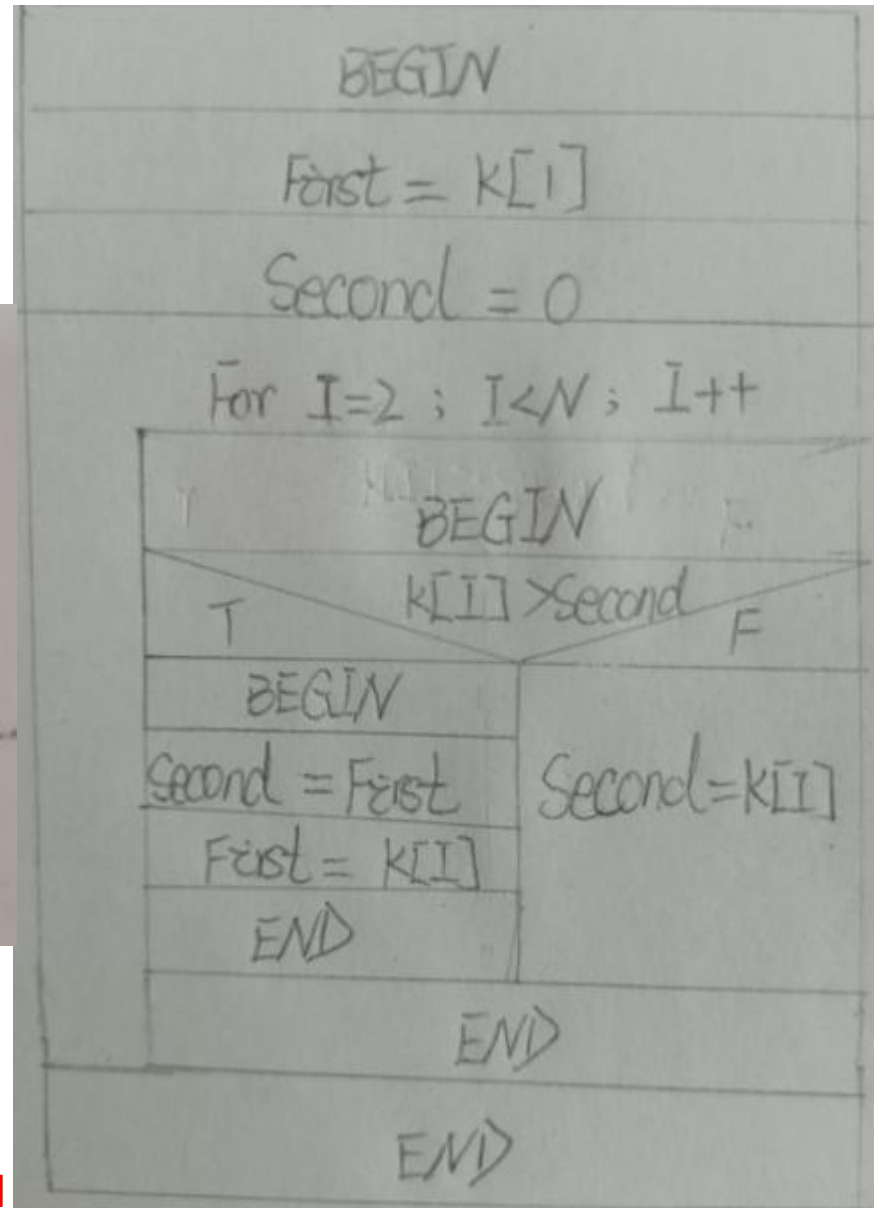 BEGIN
First = K[1]
Second = 0
For I=2 ; I<N ; I++
BEGIN
K[I] >Second
T F
BEGIN
Second = First Second=K[I]
First = K[I]
END
END
END